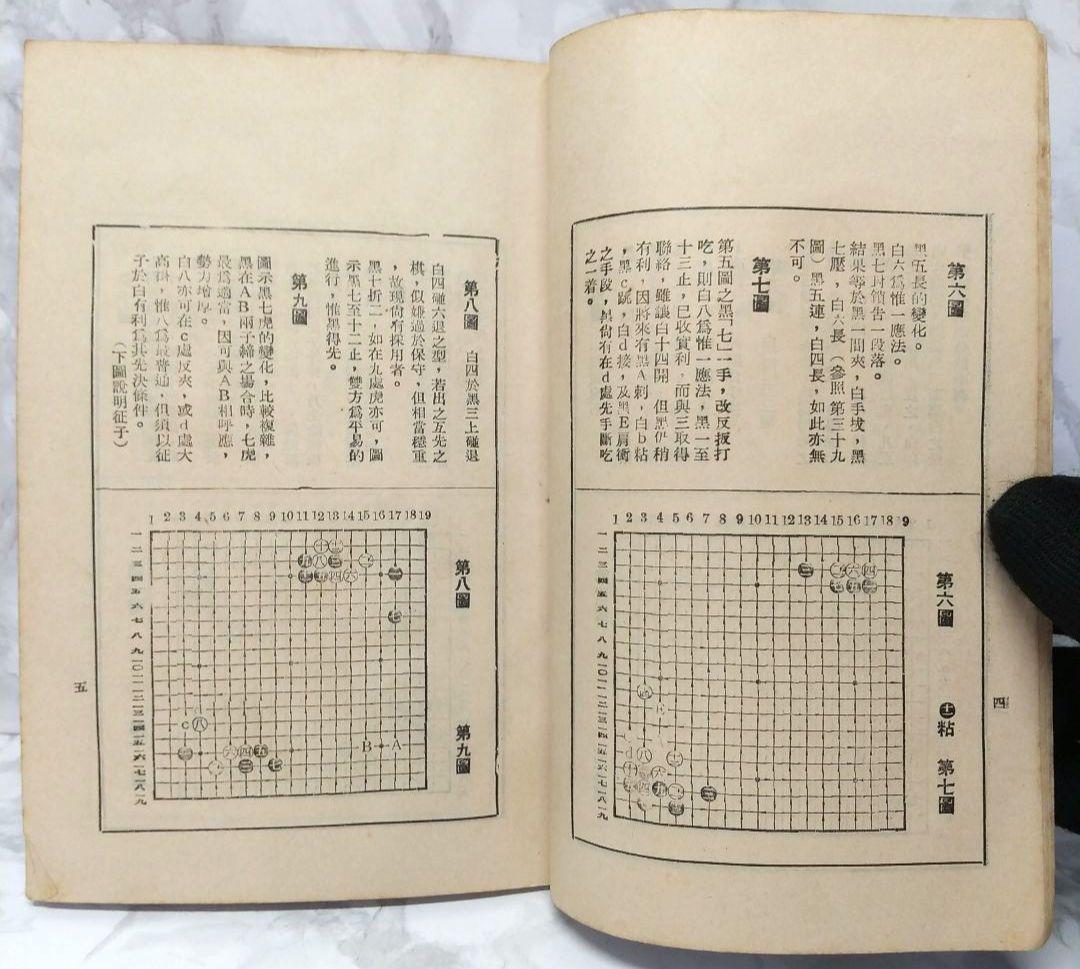 第六圖
黑五長的變化。
白六爲惟一應法。
黑七封鎖告一段落。
結果等於黑一間夾,白手拔,黑
七壓,白六長(參照第三十九
圖)黑五連,白四長,如此亦無
不可。
第七圖
第五圖之黑「七」一手,改反扳打
吃,則白八爲惟一應法,黑一至
十三止,已收實利,而與三取得
聯絡,雖讓白十四開 但黑仍稍
有利,因將來有黑A刺,白b粘
,黑c跳,白d接,及黑E肩衝
之手段,與尚有在d處先手斷吃
之一着。
1 2 3 4 5 6 7 8 9 10 11 12 13 14 15 16 17 18 9
第六圖
粘
第七圖
四
第八圖 白四於黑三上碰退
白四碰六退之型,若出之互先之
棋,似嫌過於保守,但相當穩重
,故現尚有採用者。
黑十折二,如在九處虎亦可,圖
示黑七至十二止,雙方爲平易的
進行,惟黑得先。
第九圖
圖示黑七虎的變化,比較複雜,
黑在AB兩子締之場合時,七虎
最爲適當,因可與AB相呼應,
勢力增厚。
白八亦可在c處反夾,或d處大
高掛,惟八最爲普通,但須以征
子於白有利爲其先決條件。
(下圖說明征子)
1 2 3 4 5 6 7 8 9 10 11 12 13 14 15 16 17 18 19
第八圖
第九圖
c
B A
五